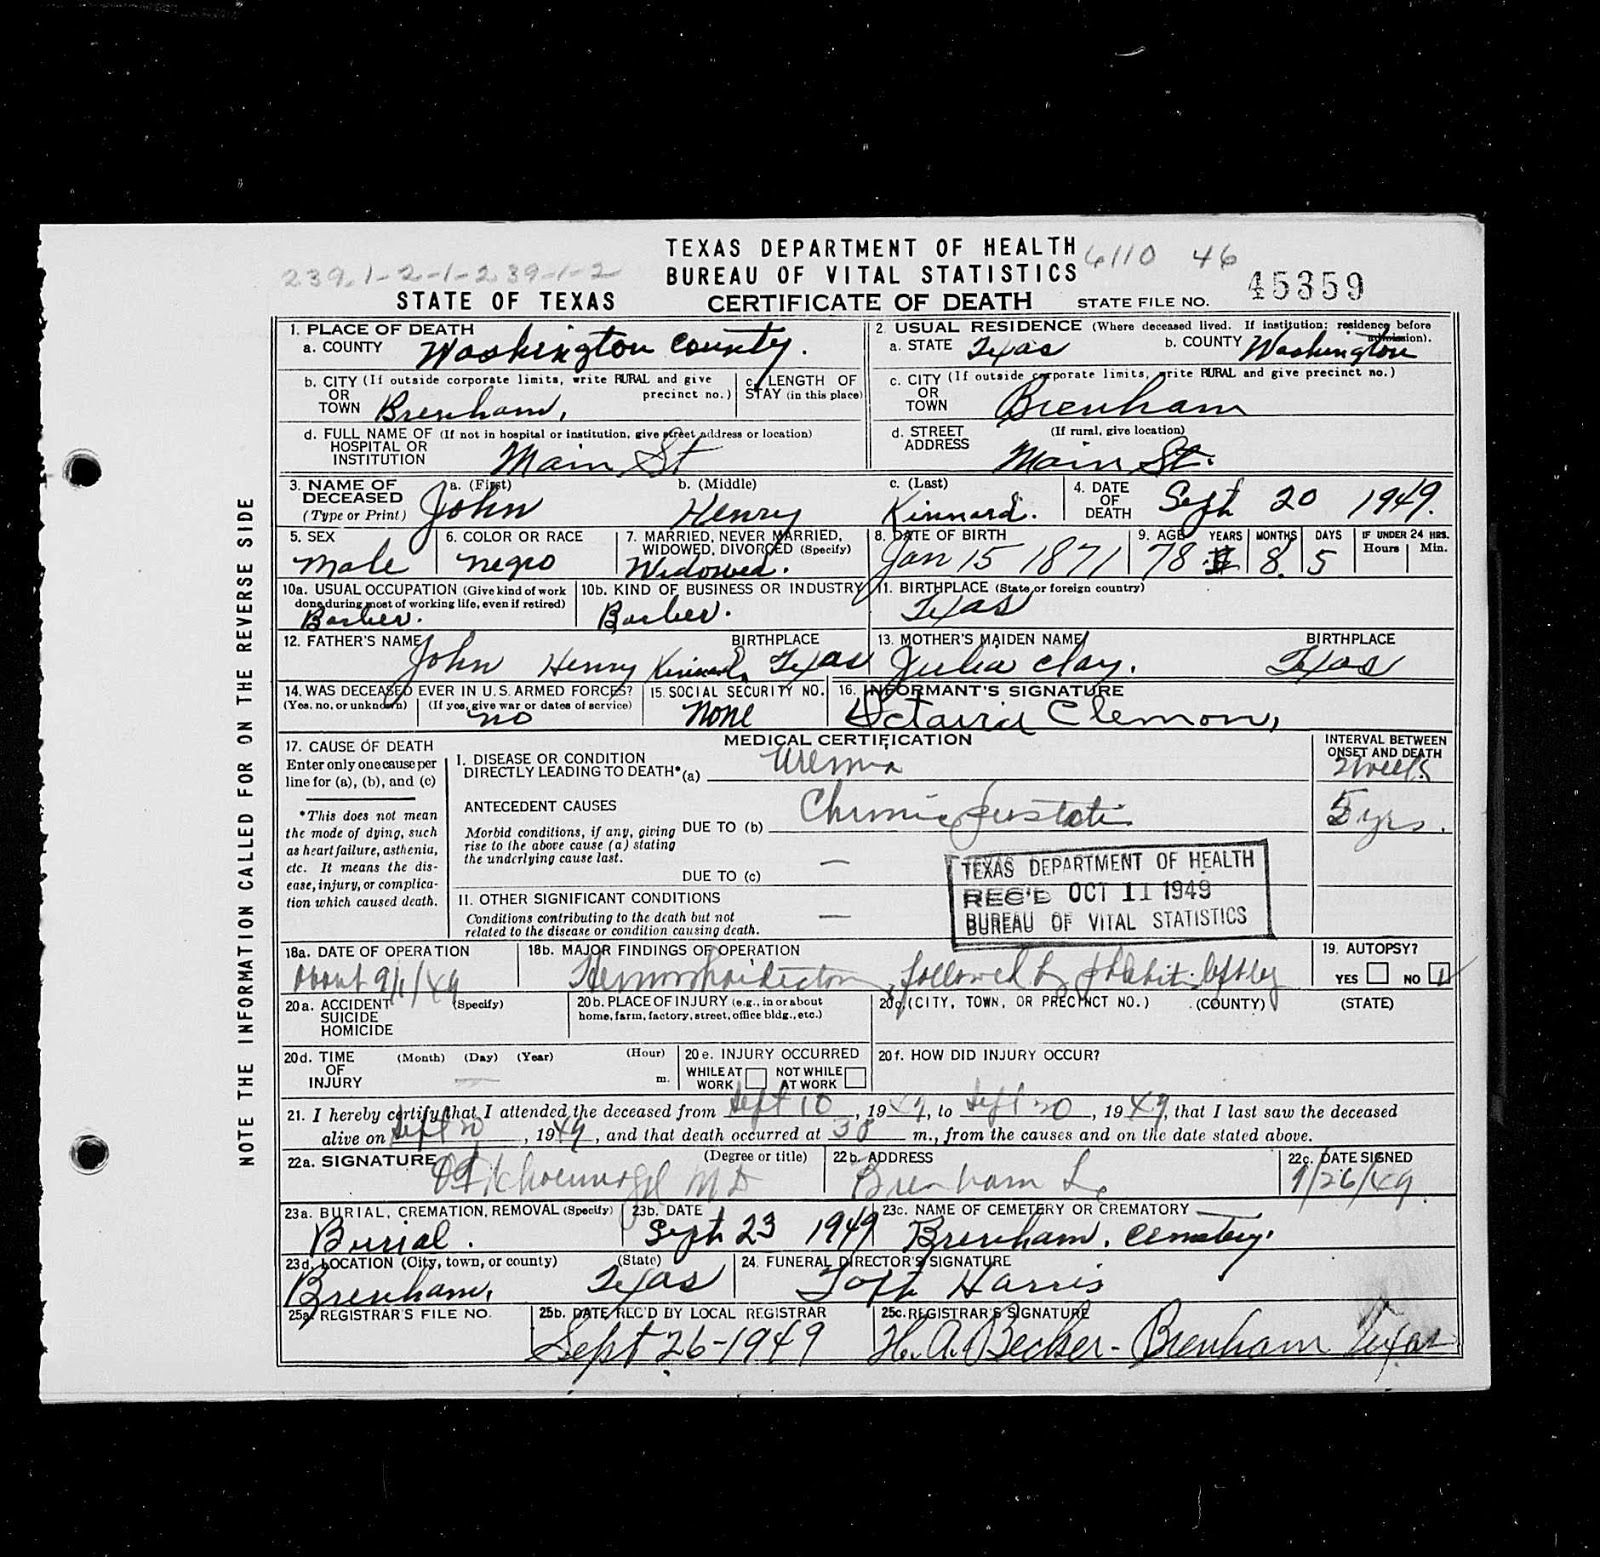 TEXAS DEPARTMENT OF HEALTH
BUREAU OF VITAL STATISTICS
6110 46
239.1-2-1-239-1-2
STATE OF TEXAS
CERTIFICATE OF DEATH
STATE FILE NO. 45359
NOTE THE INFORMATION CALLED FOR ON THE REVERSE SIDE
1. PLACE OF DEATH
a. COUNTY Washington County.
2. USUAL RESIDENCE (Where deceased lived. If institution: residence before admission).
a. STATE Texas b. COUNTY Washington
b. CITY (If outside corporate limits, write RURAL and give precinct no.)
OR
TOWN Brenham,
c. LENGTH OF
STAY (in this place)
c. CITY (If outside corporate limits, write RURAL and give precinct no.)
OR
TOWN Brenham
d. FULL NAME OF (If not in hospital or institution, give street address or location)
HOSPITAL OR
INSTITUTION Main St
d. STREET (If rural, give location)
ADDRESS Main St.
3. NAME OF a. (First) b. (Middle) c. (Last)
DECEASED
(Type or Print) John Henry Kinnard.
4. DATE
OF
DEATH Sept 20 1949.
5. SEX
Male
6. COLOR OR RACE
negro
7. MARRIED, NEVER MARRIED,
WIDOWED, DIVORCED (Specify)
Widowed.
8. DATE OF BIRTH
Jan 15 1871
9. AGE YEARS MONTHS DAYS
78 8. 5
IF UNDER 24 HRS.
Hours Min.
10a. USUAL OCCUPATION (Give kind of work
done during most of working life, even if retired)
Barber.
10b. KIND OF BUSINESS OR INDUSTRY
Barber.
11. BIRTHPLACE (State or foreign country)
Texas
12. FATHER'S NAME BIRTHPLACE
John Henry Kinnard, Texas
13. MOTHER'S MAIDEN NAME BIRTHPLACE
Julia Clay. Texas
14. WAS DECEASED EVER IN U.S. ARMED FORCES?
(Yes, no, or unknown) (If yes, give war or dates of service)
no
15. SOCIAL SECURITY NO.
None
16. INFORMANT'S SIGNATURE
Octavia Clemon,
MEDICAL CERTIFICATION
17. CAUSE OF DEATH
Enter only one cause per
line for (a), (b), and (c)
*This does not mean
the mode of dying, such
as heart failure, asthenia,
etc. It means the dis-
ease, injury, or complica-
tion which caused death.
I. DISEASE OR CONDITION
DIRECTLY LEADING TO DEATH*(a) Uremia
INTERVAL BETWEEN
ONSET AND DEATH
ANTECEDENT CAUSES
Morbid conditions, if any, giving
rise to the above cause (a) stating
the underlying cause last.
DUE TO (b) Chronic
5 yrs.
DUE TO (c) —
II. OTHER SIGNIFICANT CONDITIONS
Conditions contributing to the death but not
related to the disease or condition causing death. —
TEXAS DEPARTMENT OF HEALTH
REC'D OCT 11 1949
BUREAU OF VITAL STATISTICS
18a. DATE OF OPERATION
About 9/1/49
18b. MAJOR FINDINGS OF OPERATION
followed by
19. AUTOPSY?
YES NO
20a. ACCIDENT (Specify)
SUICIDE
HOMICIDE
20b. PLACE OF INJURY (e.g., in or about
home, farm, factory, street, office bldg., etc.)
20c. (CITY, TOWN, OR PRECINCT NO.) (COUNTY) (STATE)
20d. TIME (Month) (Day) (Year) (Hour)
OF
INJURY — m.
20e. INJURY OCCURRED
WHILE AT WORK NOT WHILE AT WORK
20f. HOW DID INJURY OCCUR?
21. I hereby certify that I attended the deceased from Sept 10, 1949, to Sept 20, 1949, that I last saw the deceased
alive on Sept 20, 1949, and that death occurred at m., from the causes and on the date stated above.
22a. SIGNATURE (Degree or title)
MD
22b. ADDRESS
Brenham
22c. DATE SIGNED
9/26/49.
23a. BURIAL, CREMATION, REMOVAL (Specify)
Burial.
23b. DATE
Sept 23 1949
23c. NAME OF CEMETERY OR CREMATORY
Brenham. Cemetery.
23d. LOCATION (City, town, or county) (State)
Brenham, Texas
24. FUNERAL DIRECTOR'S SIGNATURE
Harris
25a. REGISTRAR'S FILE NO.
25b. DATE REC'D BY LOCAL REGISTRAR
Sept 26-1949
25c. REGISTRAR'S SIGNATURE
H. A. Becker - Brenham Texas